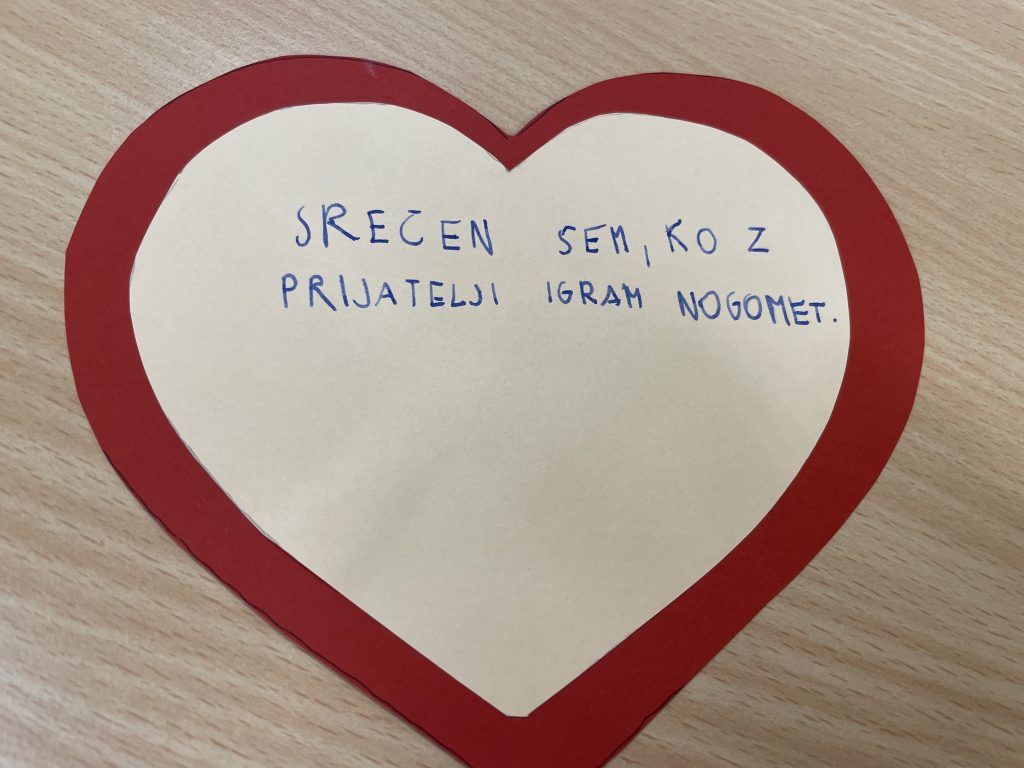 SREČEN SEM, KO Z
PRIJATELJI IGRAM NOGOMET.